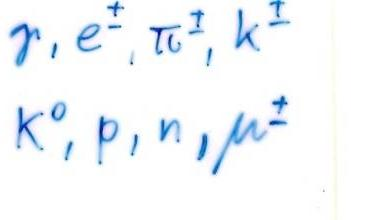 γ, e±, π±, k±
K⁰, p, n, μ±